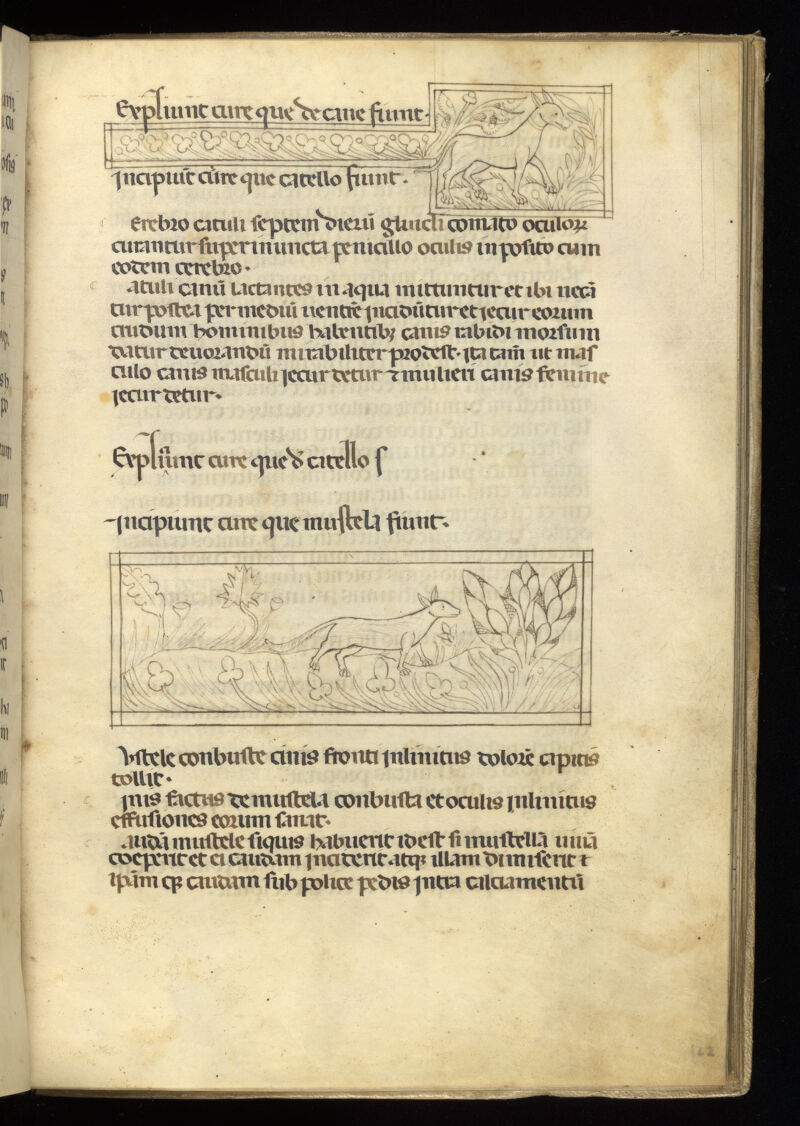 Expliunt cure que de cane fiunt.
Incipiūt cūre que catello fiunt.
erebro catuli septem dierū glaucli comato oculoꝝ
curantur super inuncta penicillo oculis inposito cum
eodem cerebro.
atuli canū lactantes in aqua mittuntur et ibi necā
tur postea per mediū uentrē incidūtur et iecur eorum
crudum hominibus habentibꝫ canis rabidi morsum
datur deuorandū mirabiliter prodest. ita tam̄ ut mas
culo canis masculi iecur detur ⁊ mulieri canis femine
iecur detur.
Expliunt cure que đ catello s
Incipiunt cure que mustela fiunt.
Vstele conbuste cinis fronti inlinitus dolorē capitis
tollit.
inis factus de mustela conbusta et oculis inlinitus
effusiones eorum sanat.
audā mustele siquis habuerit idest si mustellā uiuā
coeperit et ei caudam inciderit. atqꝫ illam dimiserit
ipām qꝫ caudam sub police pedis intra calciamentū
122